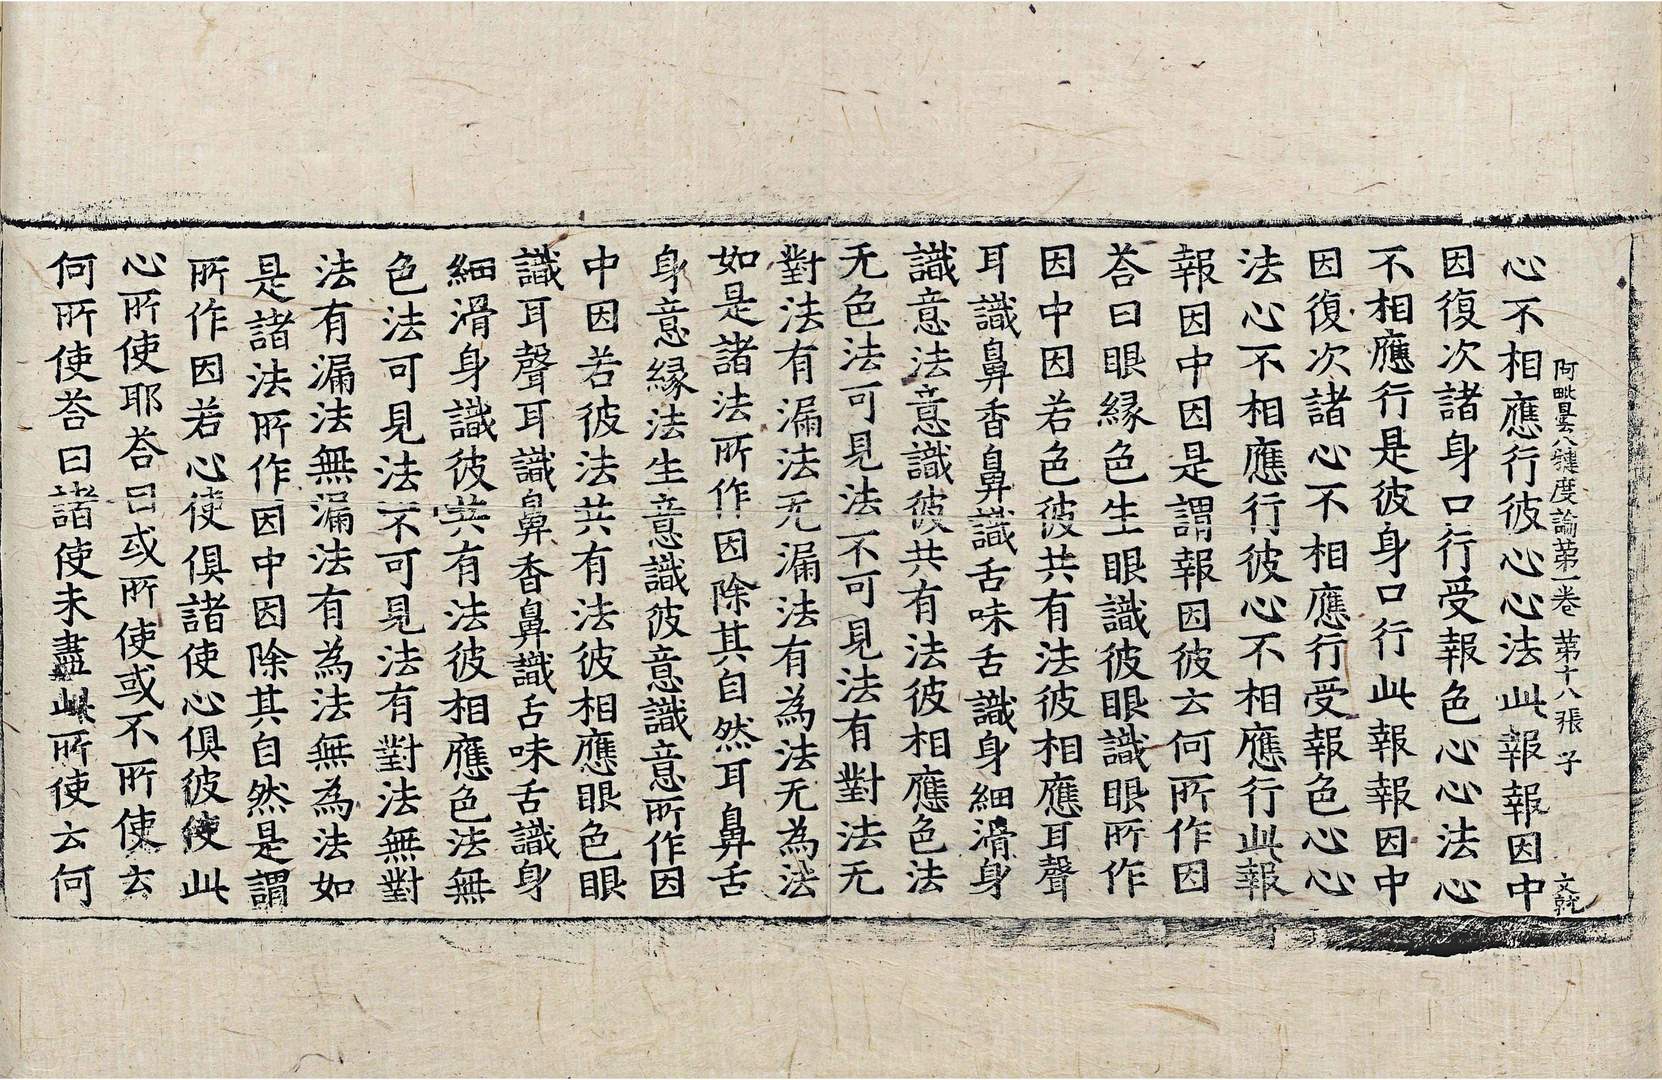 阿毗曇八揵度論第一卷 第十八張 子 文就
心不相應行彼心心法此報報因中
因復次諸身口行受報色心心法心
不相應行是彼身口行此報報因中
因復次諸心不相應行受報色心心
法心不相應行彼心不相應行此報
報因中因是謂報因彼云何所作因
荅曰眼緣色生眼識彼眼識眼所作
因中因若色彼共有法彼相應耳聲
耳識鼻香鼻識舌味舌識身細滑身
識意法意識彼共有法彼相應色法
无色法可見法不可見法有對法无
對法有漏法无漏法有為法无為法
如是諸法所作因除其自然耳鼻舌
身意緣法生意識彼意識意所作因
中因若彼法共有法彼相應眼色眼
識耳聲耳識鼻香鼻識舌味舌識身
細滑身識彼共有法彼相應色法無
色法可見法不可見法有對法無對
法有漏法無漏法有為法無為法如
是諸法所作因中因除其自然是謂
所作因若心使俱諸使心俱彼使此
心所使耶荅曰或所使或不所使云
何所使荅曰諸使未盡此所使云何